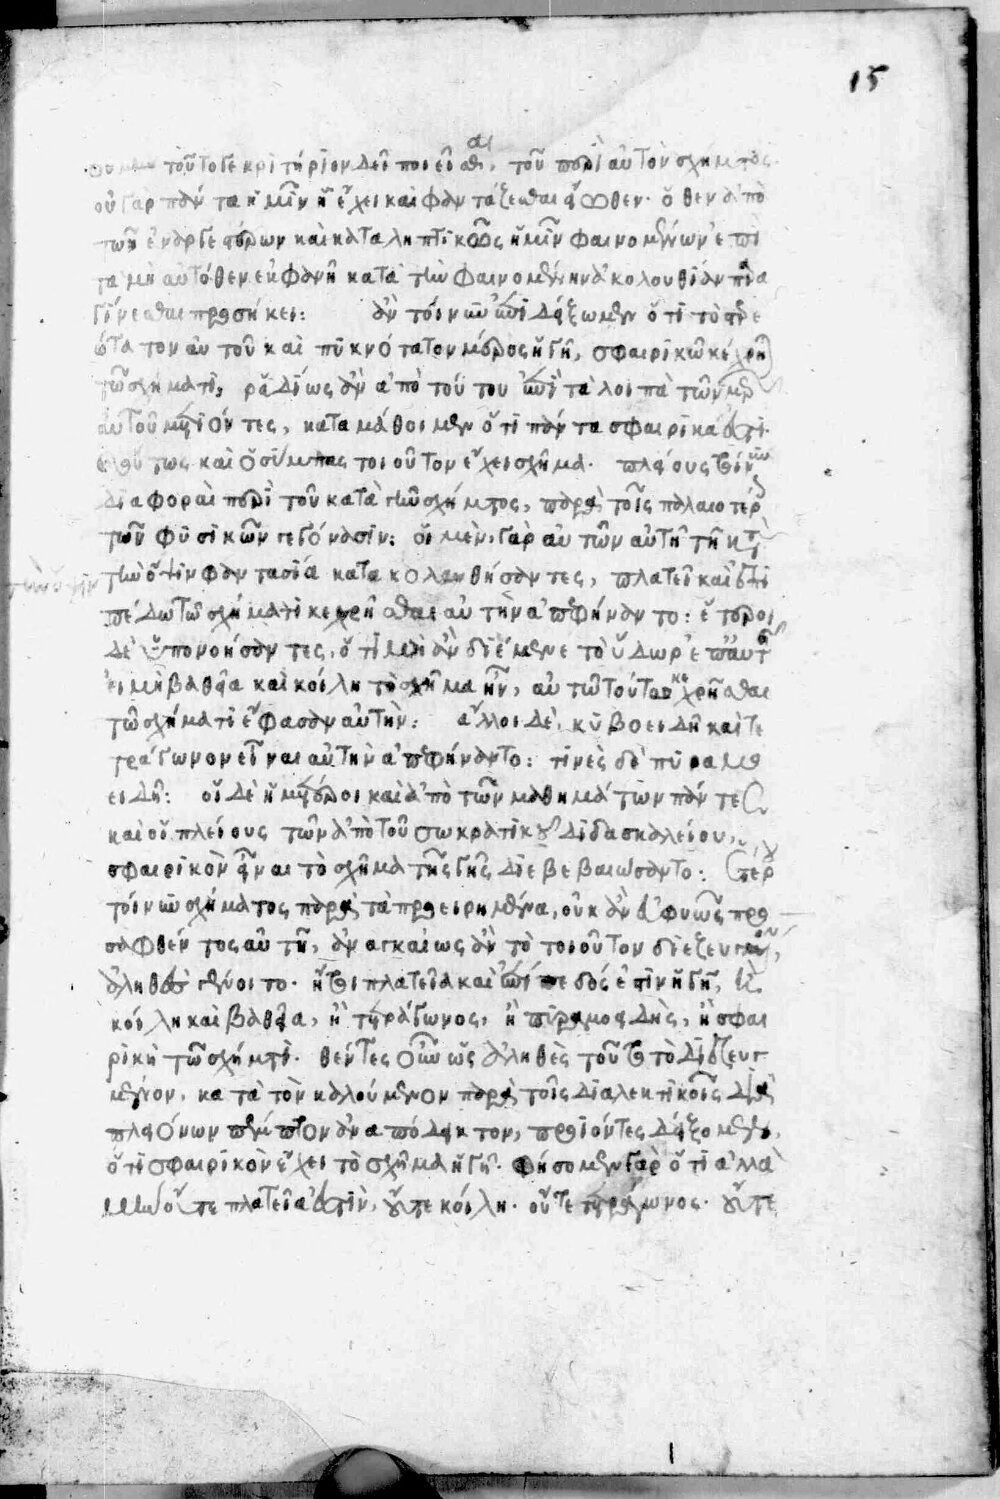 15
τοῦτο γε κριτήριον δεῖ ποιεῖσθαι, τοῦ περὶ αὐτὸν σχήματος.
οὐ γὰρ πάντα ἡμῖν ᾗ ἔχει καὶ φαντάζεσθαι εἴωθεν· ὅθεν ἀπὸ
τῶν ἐναργεστέρων καὶ καταληπτικῶς ἡμῖν φαινομένων ἐπὶ
τὰ μὴ αὐτόθεν ἐκφανῆ κατὰ τὴν φαινομένην ἀκολουθίαν
γίνεσθαι προσήκει: ἂν τοίνυν ἐπιδείξωμεν ὅτι τὸ
τατον αὐτοῦ καὶ πυκνότατον μέρος ἡ γῆ, σφαιρικῷ κέχρηται
τῷ σχήματι, ῥᾳδίως ἂν ἀπὸ τούτου ἐπὶ τὰ λοιπὰ τῶν μερῶν
αὐτοῦ μετιόντες, καταμάθοιμεν ὅτι πάντα σφαιρικά ἐστι.
καὶ ὁ σύμπας τοιοῦτον ἔχει σχῆμα. πλείους τοίνυν
διαφοραὶ περὶ τοῦ κατὰ τὴν σχήματος, παρὰ τοῖς παλαιοτέροις
τῶν φυσικῶν γεγόνασιν: οἱ μὲν γὰρ αὐτῶν αὐτῇ τῇ κατὰ
τὴν ὄψιν φαντασίᾳ κατακολουθήσαντες, πλατεῖ καὶ ἐπι
πέδῳ τῷ σχήματι κεχρῆσθαι αὐτὴν ἀπεφήναντο: ἕτεροι
δὲ ὑπονοήσαντες, ὅτι μὴ ἂν διέμενε τὸ ὕδωρ ἐπ' αὐτῆς
εἰ μὴ βαθεῖα καὶ κοίλη τὸ σχῆμα ἦν, αὐτῷ τούτῳ κεχρῆσθαι
τῷ σχήματι ἔφασαν αὐτήν: ἄλλοι δὲ, κυβοειδῆ καὶ τε
τράγωνον εἶναι αὐτὴν ἀπεφήναντο: τινὲς δὲ πυραμο
ειδῆ: οἱ δὲ ἡμέτεροι καὶ ἀπὸ τῶν μαθημάτων πάντες
καὶ οἱ πλείους τῶν ἀπὸ τοῦ σωκρατικοῦ διδασκαλείου,
σφαιρικὸν εἶναι τὸ σχῆμα τῆς γῆς διεβεβαιώσαντο:
τοίνυν σχήματος παρὰ τὰ προειρημένα, οὐκ ἂν εὐφυῶς προ
σαφθέντος αὐτῇ, ἀναγκαίως ἂν τὸ τοιοῦτον διεζευγμένον,
ἀληθὲς γένοιτο. ἤτοι πλατεῖα καὶ ἐπίπεδός ἐστιν ἡ γῆ, ἢ
κοίλη καὶ βαθεῖα, ἢ τετράγωνος, ἢ πυραμοειδής, ἢ σφαι
ρικὴ τῷ σχήματι. θέντες οὖν ὡς ἀληθὲς τοῦτο τὸ διεζευγ
μένον, κατὰ τὸν καλούμενον παρὰ τοῖς διαλεκτικοῖς διὰ
πλειόνων πέμπτον ἀναπόδεικτον, προϊόντες δείξομεν,
ὅτι σφαιρικὸν ἔχει τὸ σχῆμα ἡ γῆ. φήσομεν γὰρ ὅτι ἀλλὰ
μὴν οὔτε πλατεῖα ἐστὶν, οὔτε κοίλη. οὔτε τετράγωνος. οὔτε